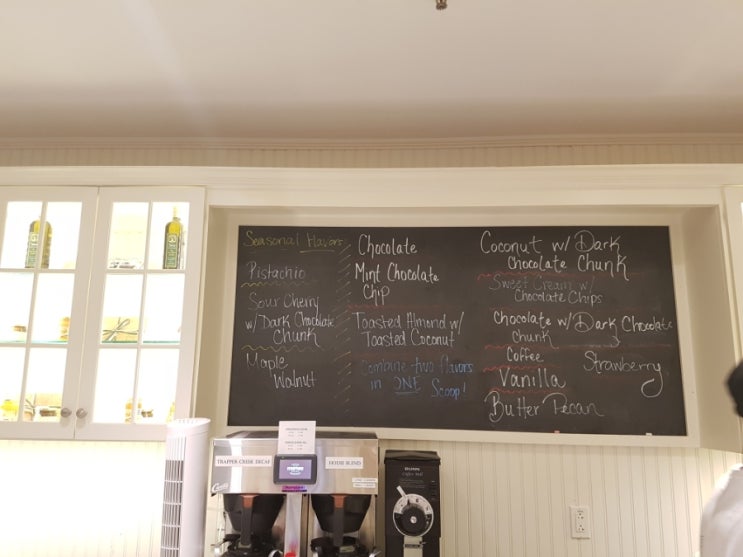 Seasonal Flavors
Pistachio
Sour Cherry
w/ Dark Chocolate
Chunk
Maple
Walnut
Chocolate
Mint Chocolate
Chip
Toasted Almond w/
Toasted Coconut
Combine two flavors
in ONE Scoop!
Coconut w/ Dark
Chocolate Chunk
Sweet Cream w/
Chocolate Chips
Chocolate w/ Dark Chocolate
Chunk
Coffee
Strawberry
Vanilla
Butter Pecan
TRAPPER CREEK DECAF
HOUSE BLEND
Curtis